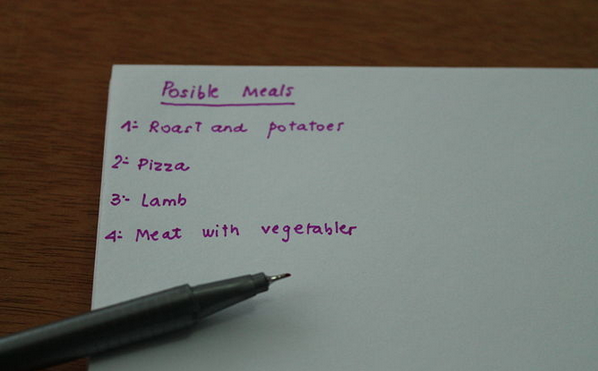 Posible meals
1:- Roast and potatoes
2:- Pizza
3:- Lamb
4:- Meat with vegetabler